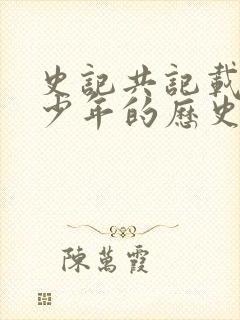 史記共記載
少年的歷史
陳萬霞